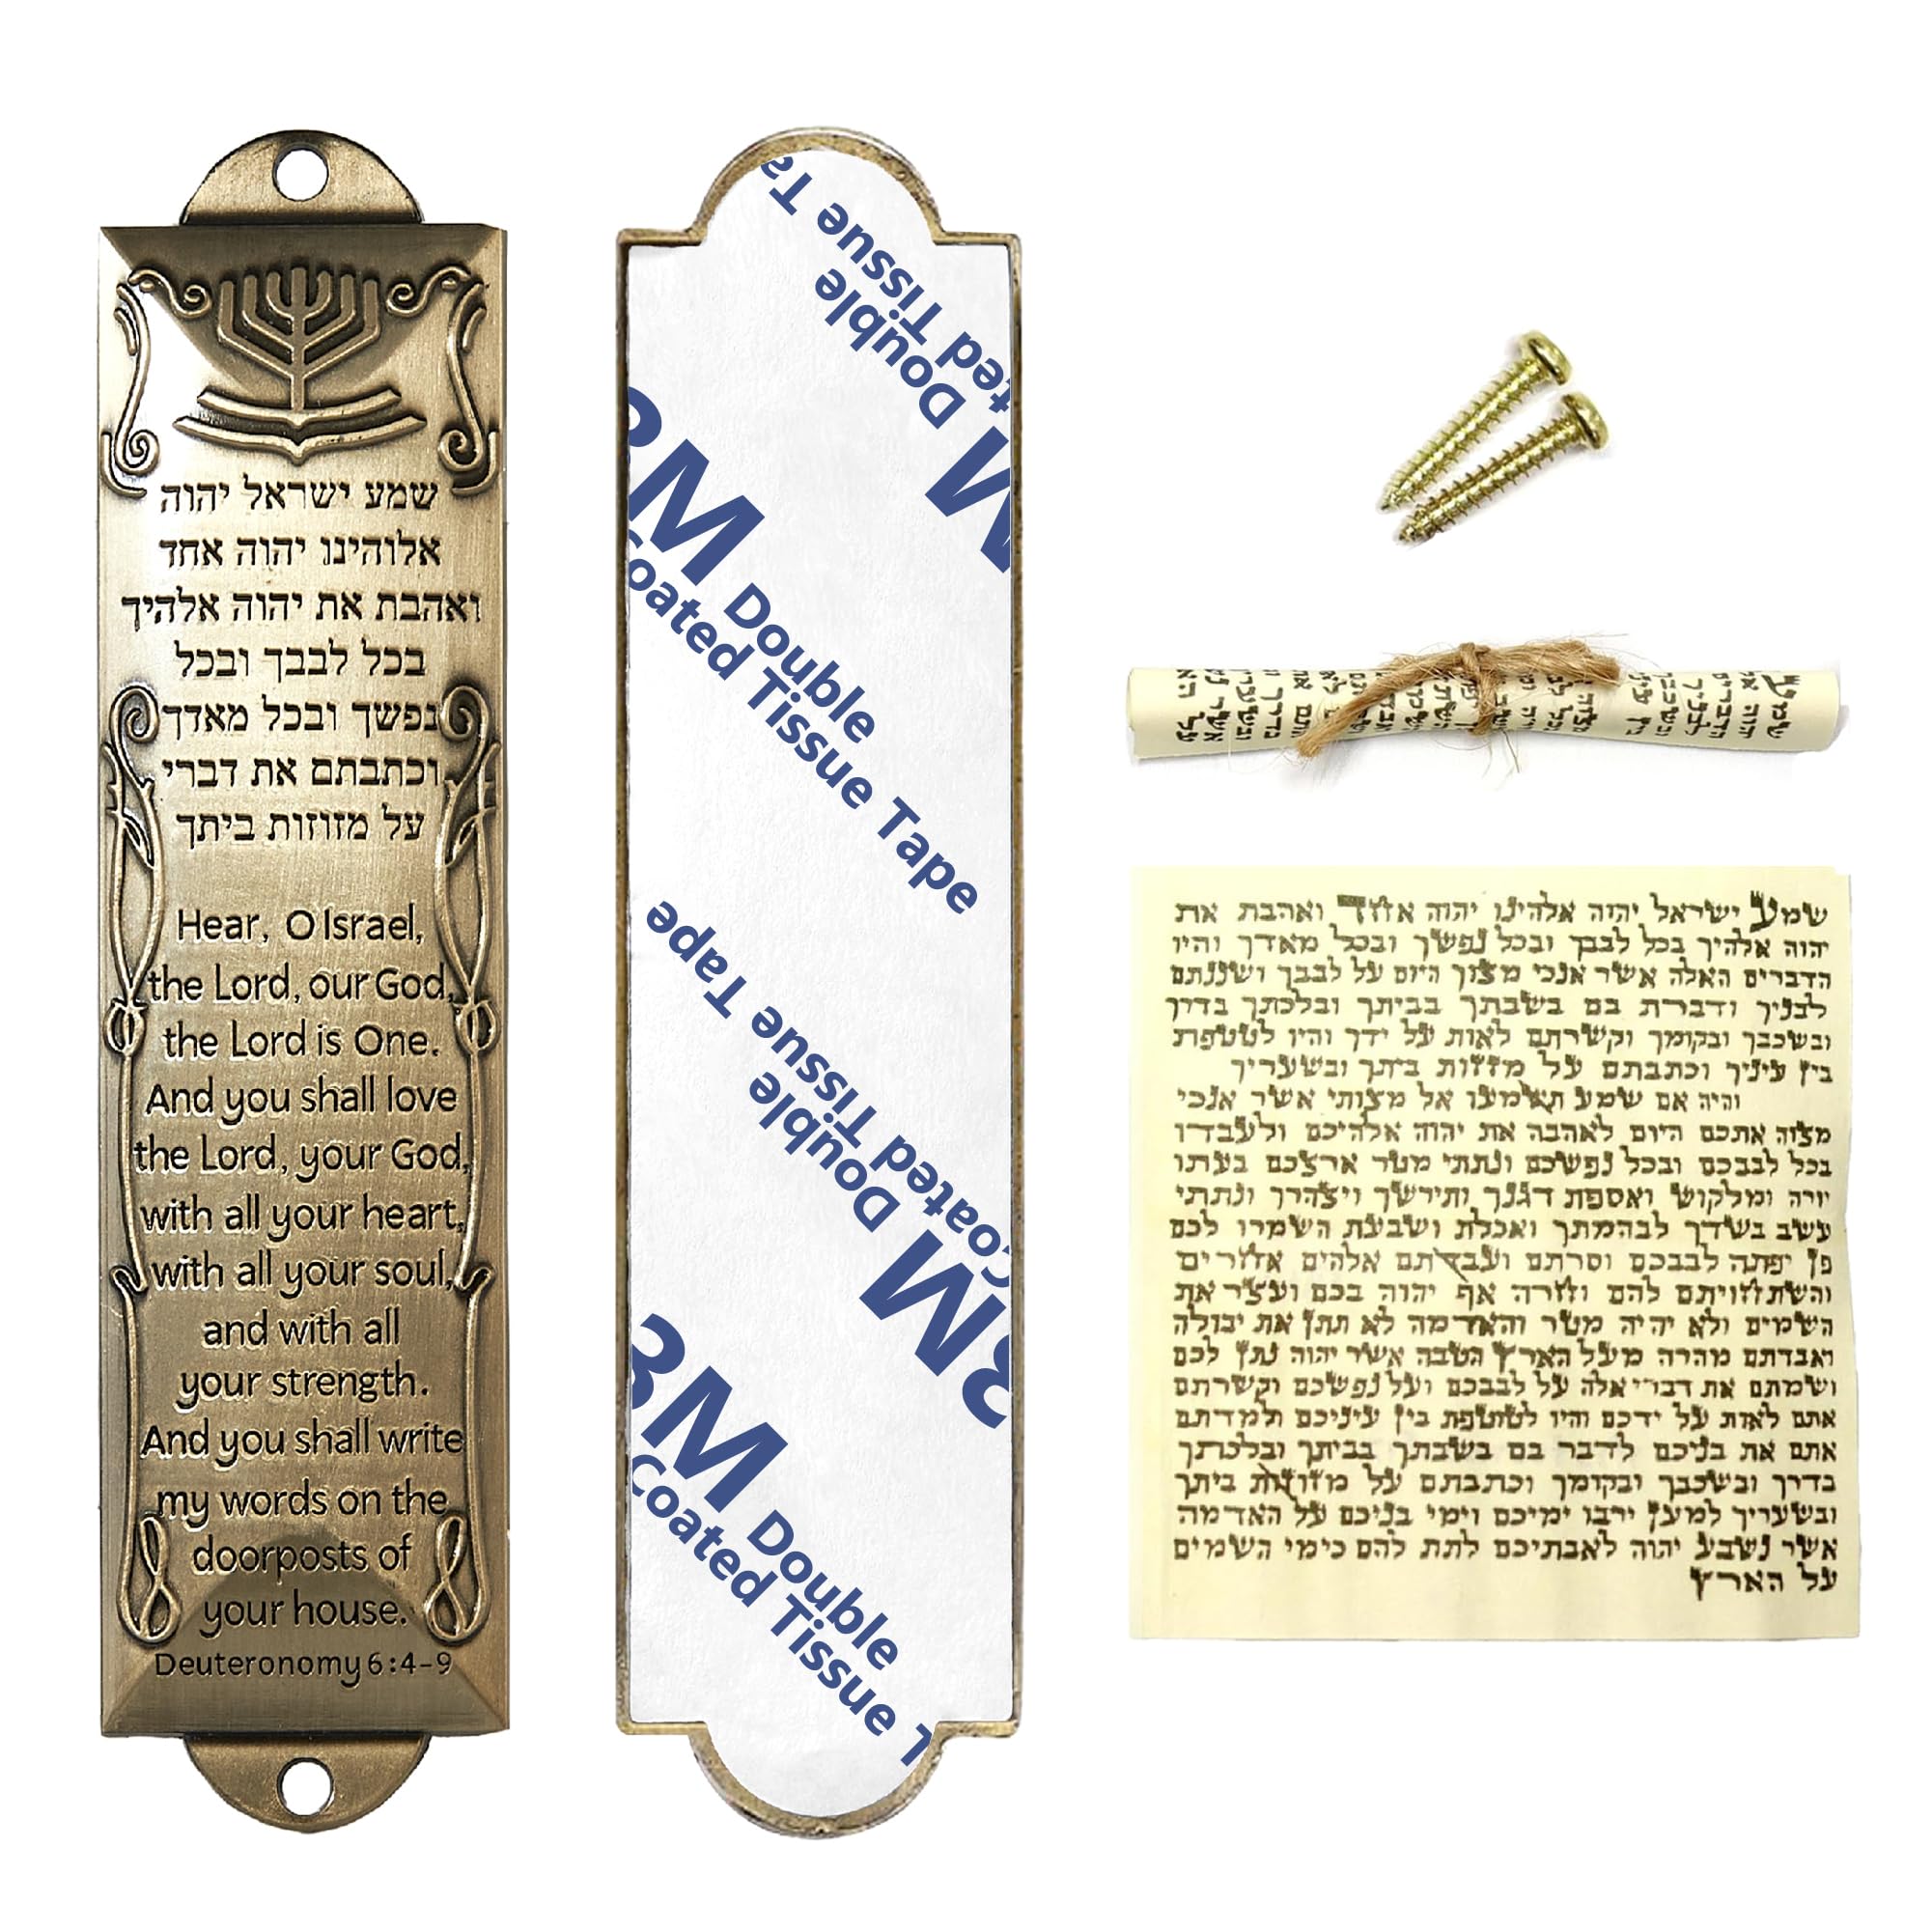 שמע ישראל יהוה
אלוהינו יהוה אחד
ואהבת את יהוה אלהיך
בכל לבבך ובכל
נפשך ובכל מאדך
וכתבתם את דברי
על מזוזות ביתך
Hear, O Israel,
the Lord, our God,
the Lord is One.
And you shall love
the Lord, your God,
with all your heart,
with all your soul,
and with all
your strength.
And you shall write
my words on the
doorposts of
your house.
Deuteronomy 6:4-9
Tissue Ta
Double
3M Double
Coated Tissue Tape
3M Double
Coated Tissue Tape
3M Double
Coated Tissue T
שמע ישראל יהוה אלהינו יהוה אחד ואהבת את
יהוה אלהיך בכל לבבך ובכל נפשך ובכל מאדך והיו
הדברים האלה אשר אנכי מצוך היום על לבבך ושננתם
לבניך ודברת בם בשבתך בביתך ובלכתך בדרך
ובשכבך ובקומך וקשרתם לאות על ידך והיו לטטפת
בין עיניך וכתבתם על מזזות ביתך ובשעריך
והיה אם שמע תשמעו אל מצותי אשר אנכי
מצוה אתכם היום לאהבה את יהוה אלהיכם ולעבדו
בכל לבבכם ובכל נפשכם ונתתי מטר ארצכם בעתו
יורה ומלקוש ואספת דגנך ותירשך ויצהרך ונתתי
עשב בשדך לבהמתך ואכלת ושבעת השמרו לכם
פן יפתה לבבכם וסרתם ועבדתם אלהים אחרים
והשתחויתם להם וחרה אף יהוה בכם ועצר את
השמים ולא יהיה מטר והאדמה לא תתן את יבולה
ואבדתם מהרה מעל הארץ הטבה אשר יהוה נתן לכם
ושמתם את דברי אלה על לבבכם ועל נפשכם וקשרתם
אתם לאות על ידכם והיו לטוטפת בין עיניכם ולמדתם
אתם את בניכם לדבר בם בשבתך בביתך ובלכתך
בדרך ובשכבך ובקומך וכתבתם על מזוזות ביתך
ובשעריך למען ירבו ימיכם וימי בניכם על האדמה
אשר נשבע יהוה לאבתיכם לתת להם כימי השמים
על הארץ